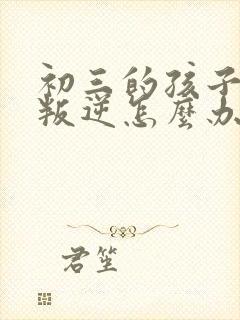 初三的孩子
叛逆怎麽办
君笙